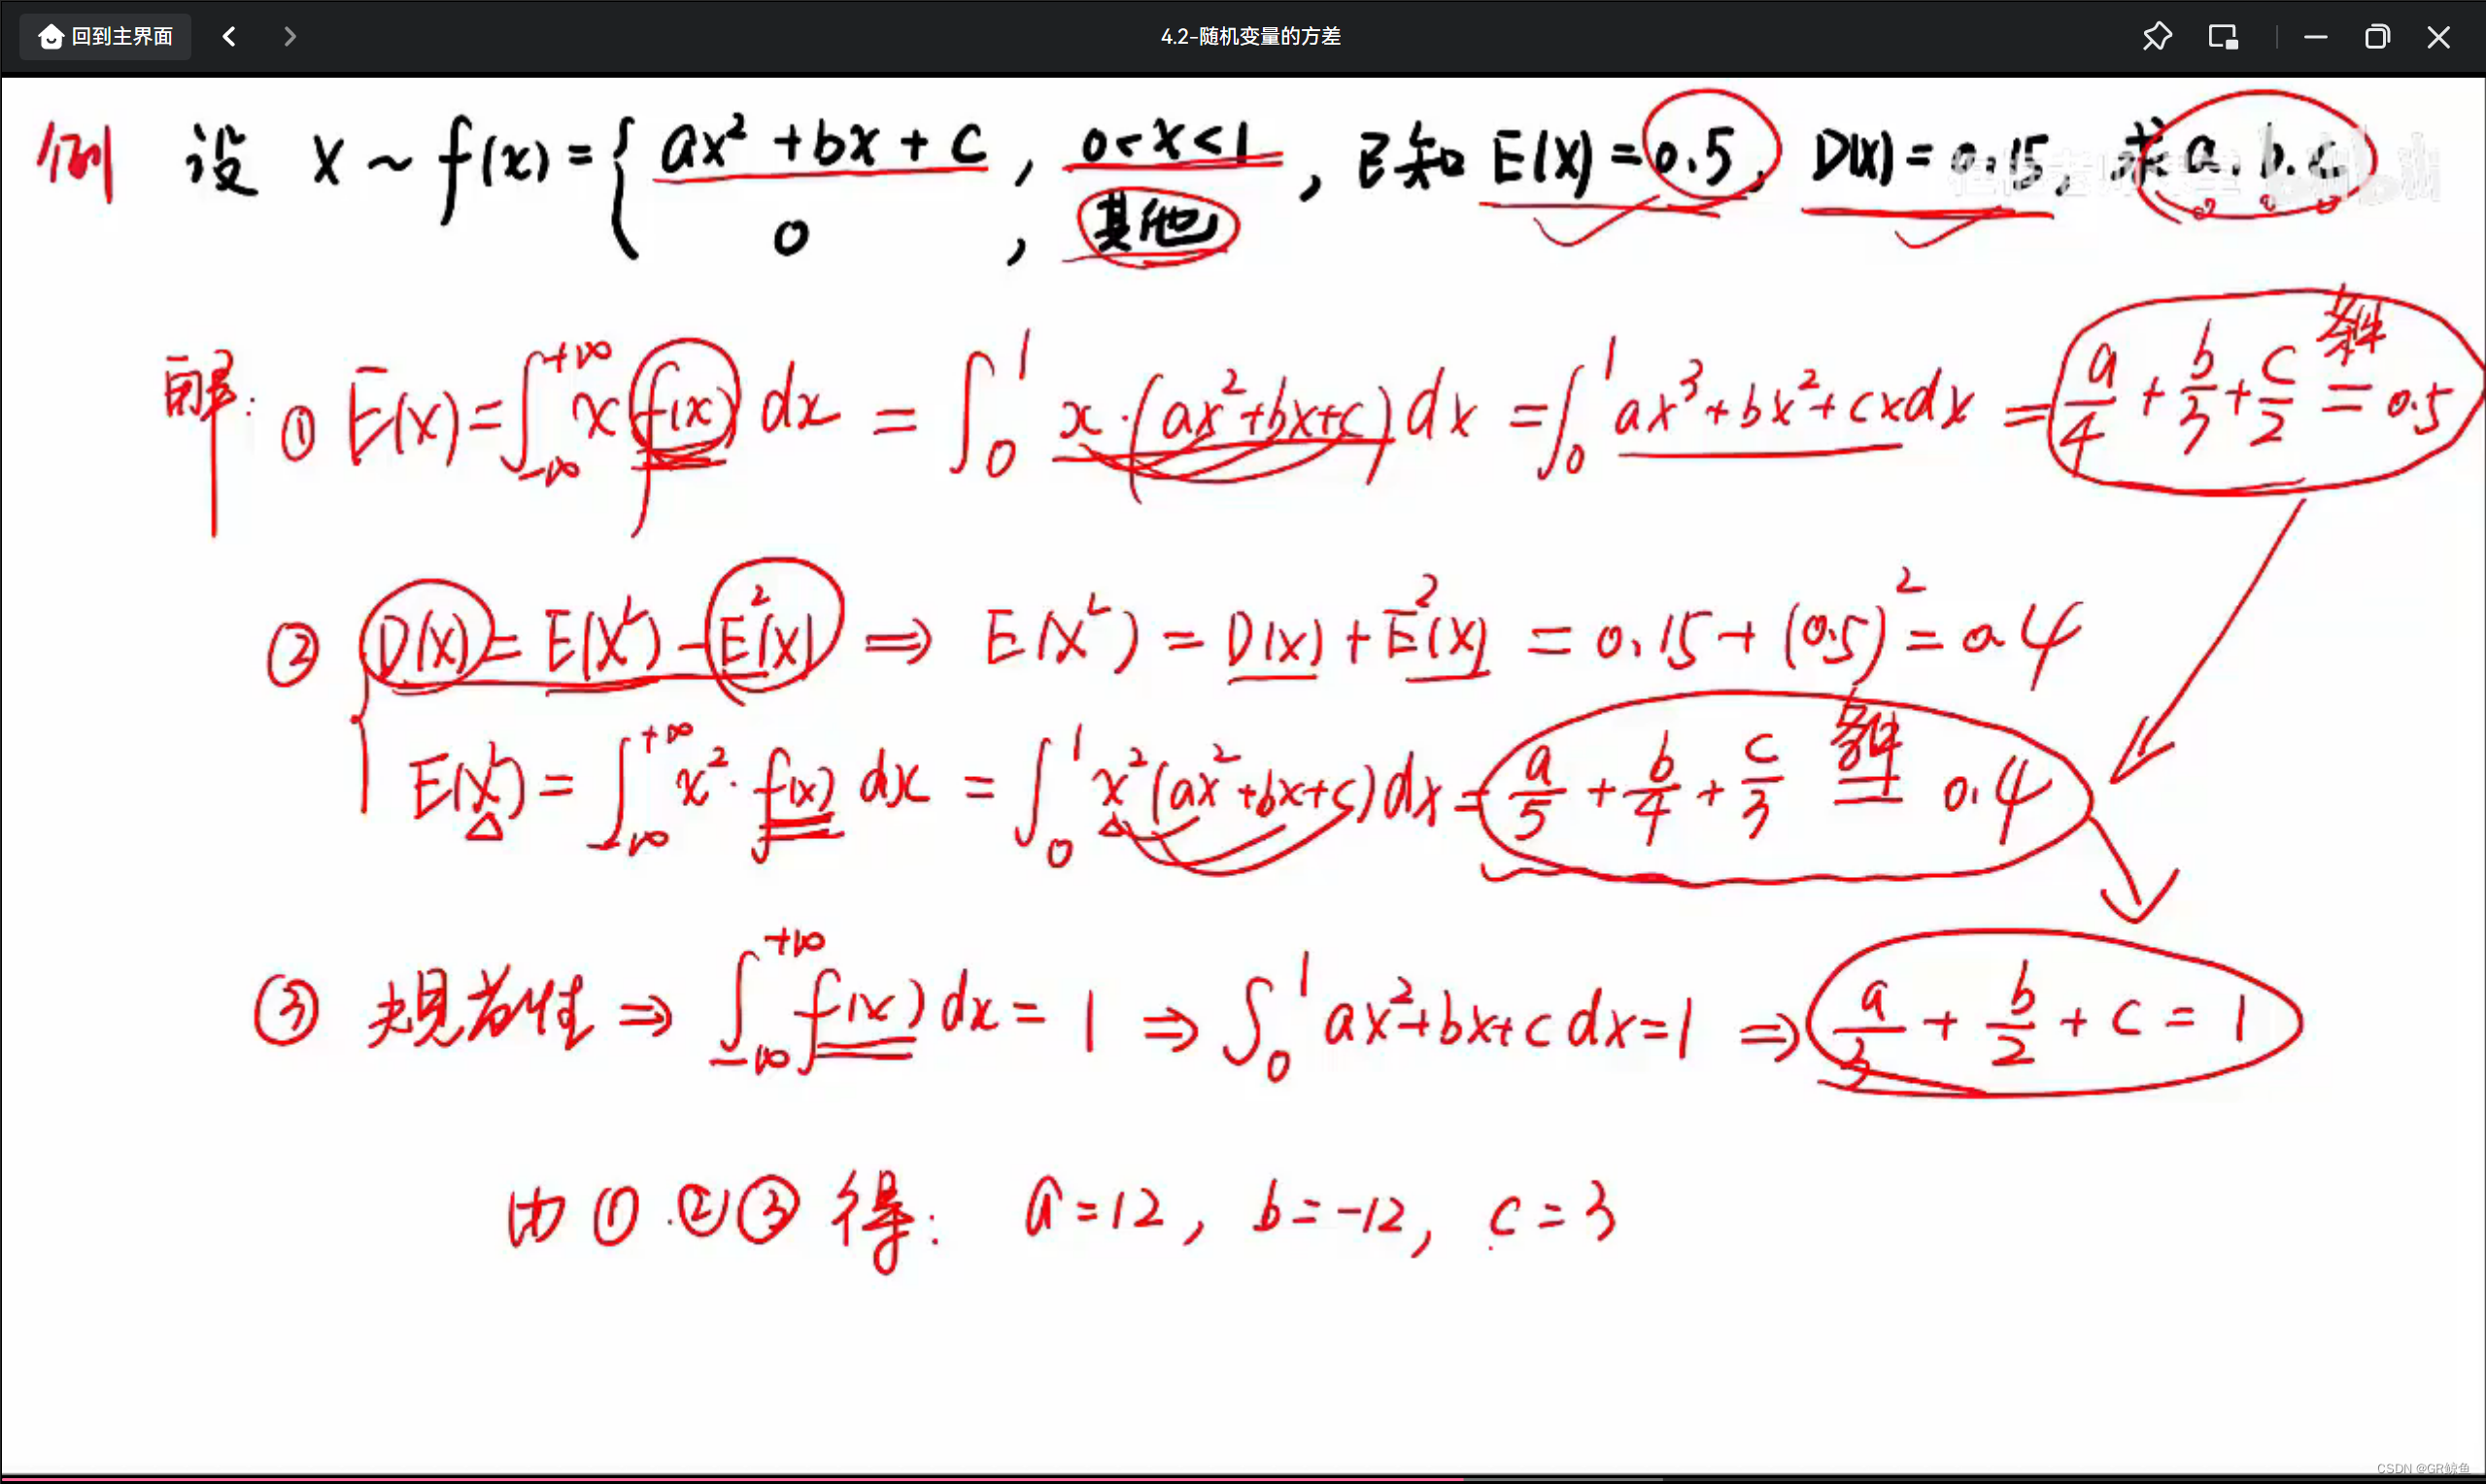 回到主界面
4.2-随机变量的方差
例 设 X ~ f(x) = { ax² + bx + c , 0 < x < 1
0 , 其他 , 已知 E(X) = 0.5, D(X) = 0.15, 求 a. b. c
解: ① E(X) = ∫_{-∞}^{+∞} x f(x) dx = ∫_0^1 x·(ax²+bx+c) dx = ∫_0^1 ax³+bx²+cx dx = a/4 + b/3 + c/2 条件= 0.5
② D(X) = E(X²) - E²(X) ⇒ E(X²) = D(X) + E²(X) = 0.15 + (0.5)² = 0.4
E(X²) = ∫_{-∞}^{+∞} x²·f(x) dx = ∫_0^1 x²(ax²+bx+c) dx = a/5 + b/4 + c/3 条件= 0.4
③ 规范性 ⇒ ∫_{-∞}^{+∞} f(x) dx = 1 ⇒ ∫_0^1 ax²+bx+c dx = 1 ⇒ a/3 + b/2 + c = 1
由 ① ② ③ 得: a = 12, b = -12, c = 3
CSDN @GR鲸鱼